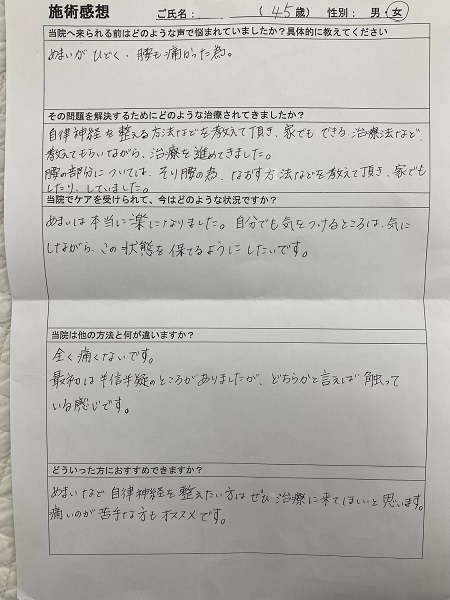 施術感想 ご氏名: (45歳) 性別: 男・女
当院へ来られる前はどのような声で悩まれていましたか？具体的に教えてください
めまいが ひどく、腰も痛かった為。
その問題を解決するためにどのような治療されてきましたか？
自律神経を整える方法などを教えて頂き、家でも できる 治療法など、
教えてもらいながら、治療を進めてきました。
腰の部分については、そり腰の為、なおす方法などを教えて頂き、家でも
したり、していました。
当院でケアを受けられて、今はどのような状況ですか？
めまいは本当に楽になりました。自分でも気をつけるところは、気に
しながら、この状態を保てるようにしたいです。
当院は他の方法と何が違いますか？
全く痛くないです。
最初は半信半疑のところがありましたが、どちらかと言えば 触って
いる感じです。
どういった方におすすめできますか？
めまいなど自律神経を整えたい方はぜひ 治療に来てほしいと思います。
痛いのが苦手な方もオススメです。